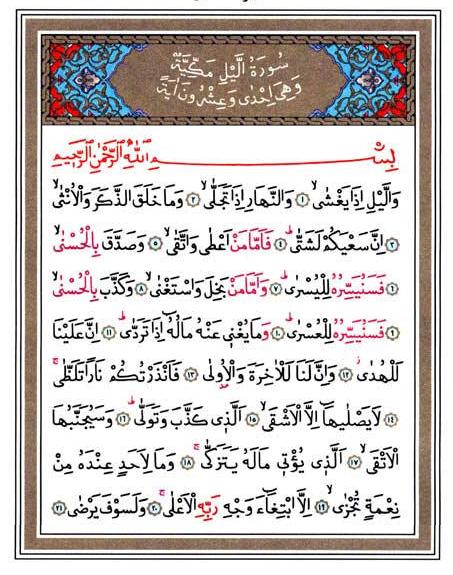 سُورَةُ الَّيْلِ مَكِّيَّةٌ
وَهِيَ اِحْدٰى وَعِشْرُونَ اٰيَةً
بِسْمِ اللّٰهِ الرَّحْمٰنِ الرَّحِيمِ
وَالَّيْلِ اِذَا يَغْشٰىۙ ﴿١﴾ وَالنَّهَارِ اِذَا تَجَلّٰىۙ ﴿٢﴾ وَمَا خَلَقَ الذَّكَرَ وَالْاُنْثٰىۙ
﴿٣﴾ اِنَّ سَعْيَكُمْ لَشَتّٰىۜ ﴿٤﴾ فَاَمَّا مَنْ اَعْطٰى وَاتَّقٰىۙ ﴿٥﴾ وَصَدَّقَ بِالْحُسْنٰىۙ
﴿٦﴾ فَسَنُيَسِّرُهُ لِلْيُسْرٰىۜ ﴿٧﴾ وَاَمَّا مَنْ بَخِلَ وَاسْتَغْنٰىۙ ﴿٨﴾ وَكَذَّبَ بِالْحُسْنٰىۙ
﴿٩﴾ فَسَنُيَسِّرُهُ لِلْعُسْرٰىۜ ﴿١٠﴾ وَمَا يُغْنِي عَنْهُ مَالُهُٓ اِذَا تَرَدّٰىۜ ﴿١١﴾ اِنَّ عَلَيْنَا
لَلْهُدٰىۘ ﴿١٢﴾ وَاِنَّ لَنَا لَلْاٰخِرَةَ وَالْاُو۫لٰى ﴿١٣﴾ فَاَنْذَرْتُكُمْ نَارًا تَلَظّٰىۚ
﴿١٤﴾ لَا يَصْلٰيهَٓا اِلَّا الْاَشْقٰىۙ ﴿١٥﴾ اَلَّذِي كَذَّبَ وَتَوَلّٰىۜ ﴿١٦﴾ وَسَيُجَنَّبُهَا
الْاَتْقٰىۙ ﴿١٧﴾ اَلَّذِي يُؤْتِي مَالَهُ يَتَزَكّٰىۚ ﴿١٨﴾ وَمَا لِاَحَدٍ عِنْدَهُ مِنْ
نِعْمَةٍ تُجْزٰىۙ ﴿١٩﴾ اِلَّا ابْتِغَٓاءَ وَجْهِ رَبِّهِ الْاَعْلٰىۚ ﴿٢٠﴾ وَلَسَوْفَ يَرْضٰى ﴿٢١﴾